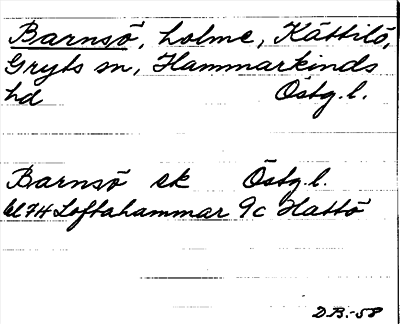 Barnsö, holme, Kättilö,
Gryts sn, Hammarkinds
hd Östg.l.
Barnsö ek Östg.l.
bl 74 Loftahammar 9c Hattö
D.B.-58